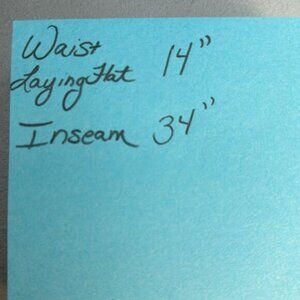 Waist
Laying Flat 14"
Inseam 34"